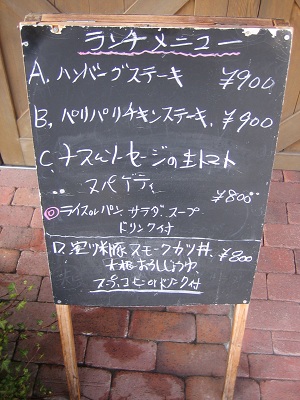 ランチメニュー
A, ハンバーグステーキ ¥900
B, パリパリチキンステーキ, ¥900
C, ナスとソーセージの生トマト
スパゲティ ¥800
◎ライスorパン サラダ、スープ
ドリンク付
D, 豚スモークカツ丼 ¥800
大根おろししょうゆ
ドリンク付